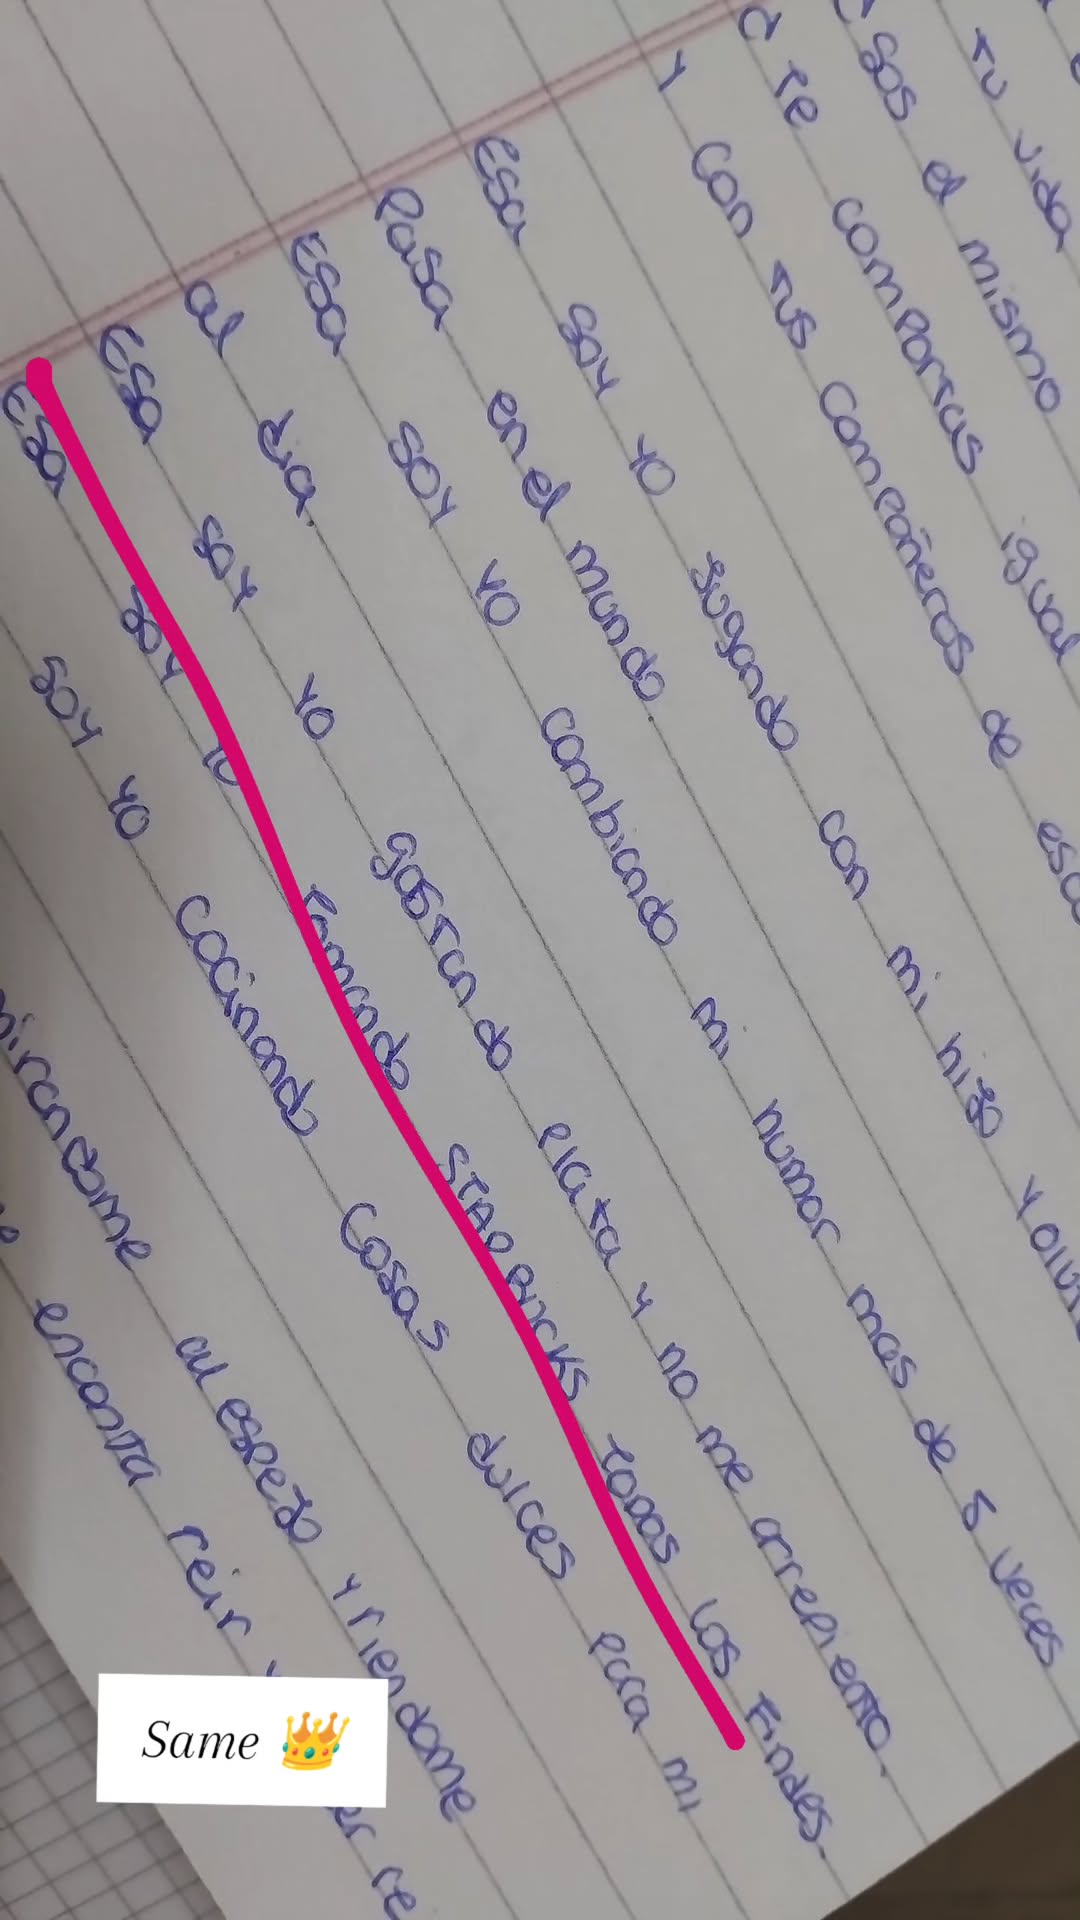 tu vida
sos el mismo
te comportas igual
y con tus compañeros de
Esa soy yo jugando con mi hijo y
Pasa en el mundo.
Esa soy yo cambiando mi humor mas de 5 veces
al dia.
Esa soy yo gastando plata y no me arrepiento.
Esa soy yo tomando STARBUCKS todos los findes.
soy yo cocinando cosas dulces para mi
mirandome al espejo y riendome
encanta reir
Same 👑